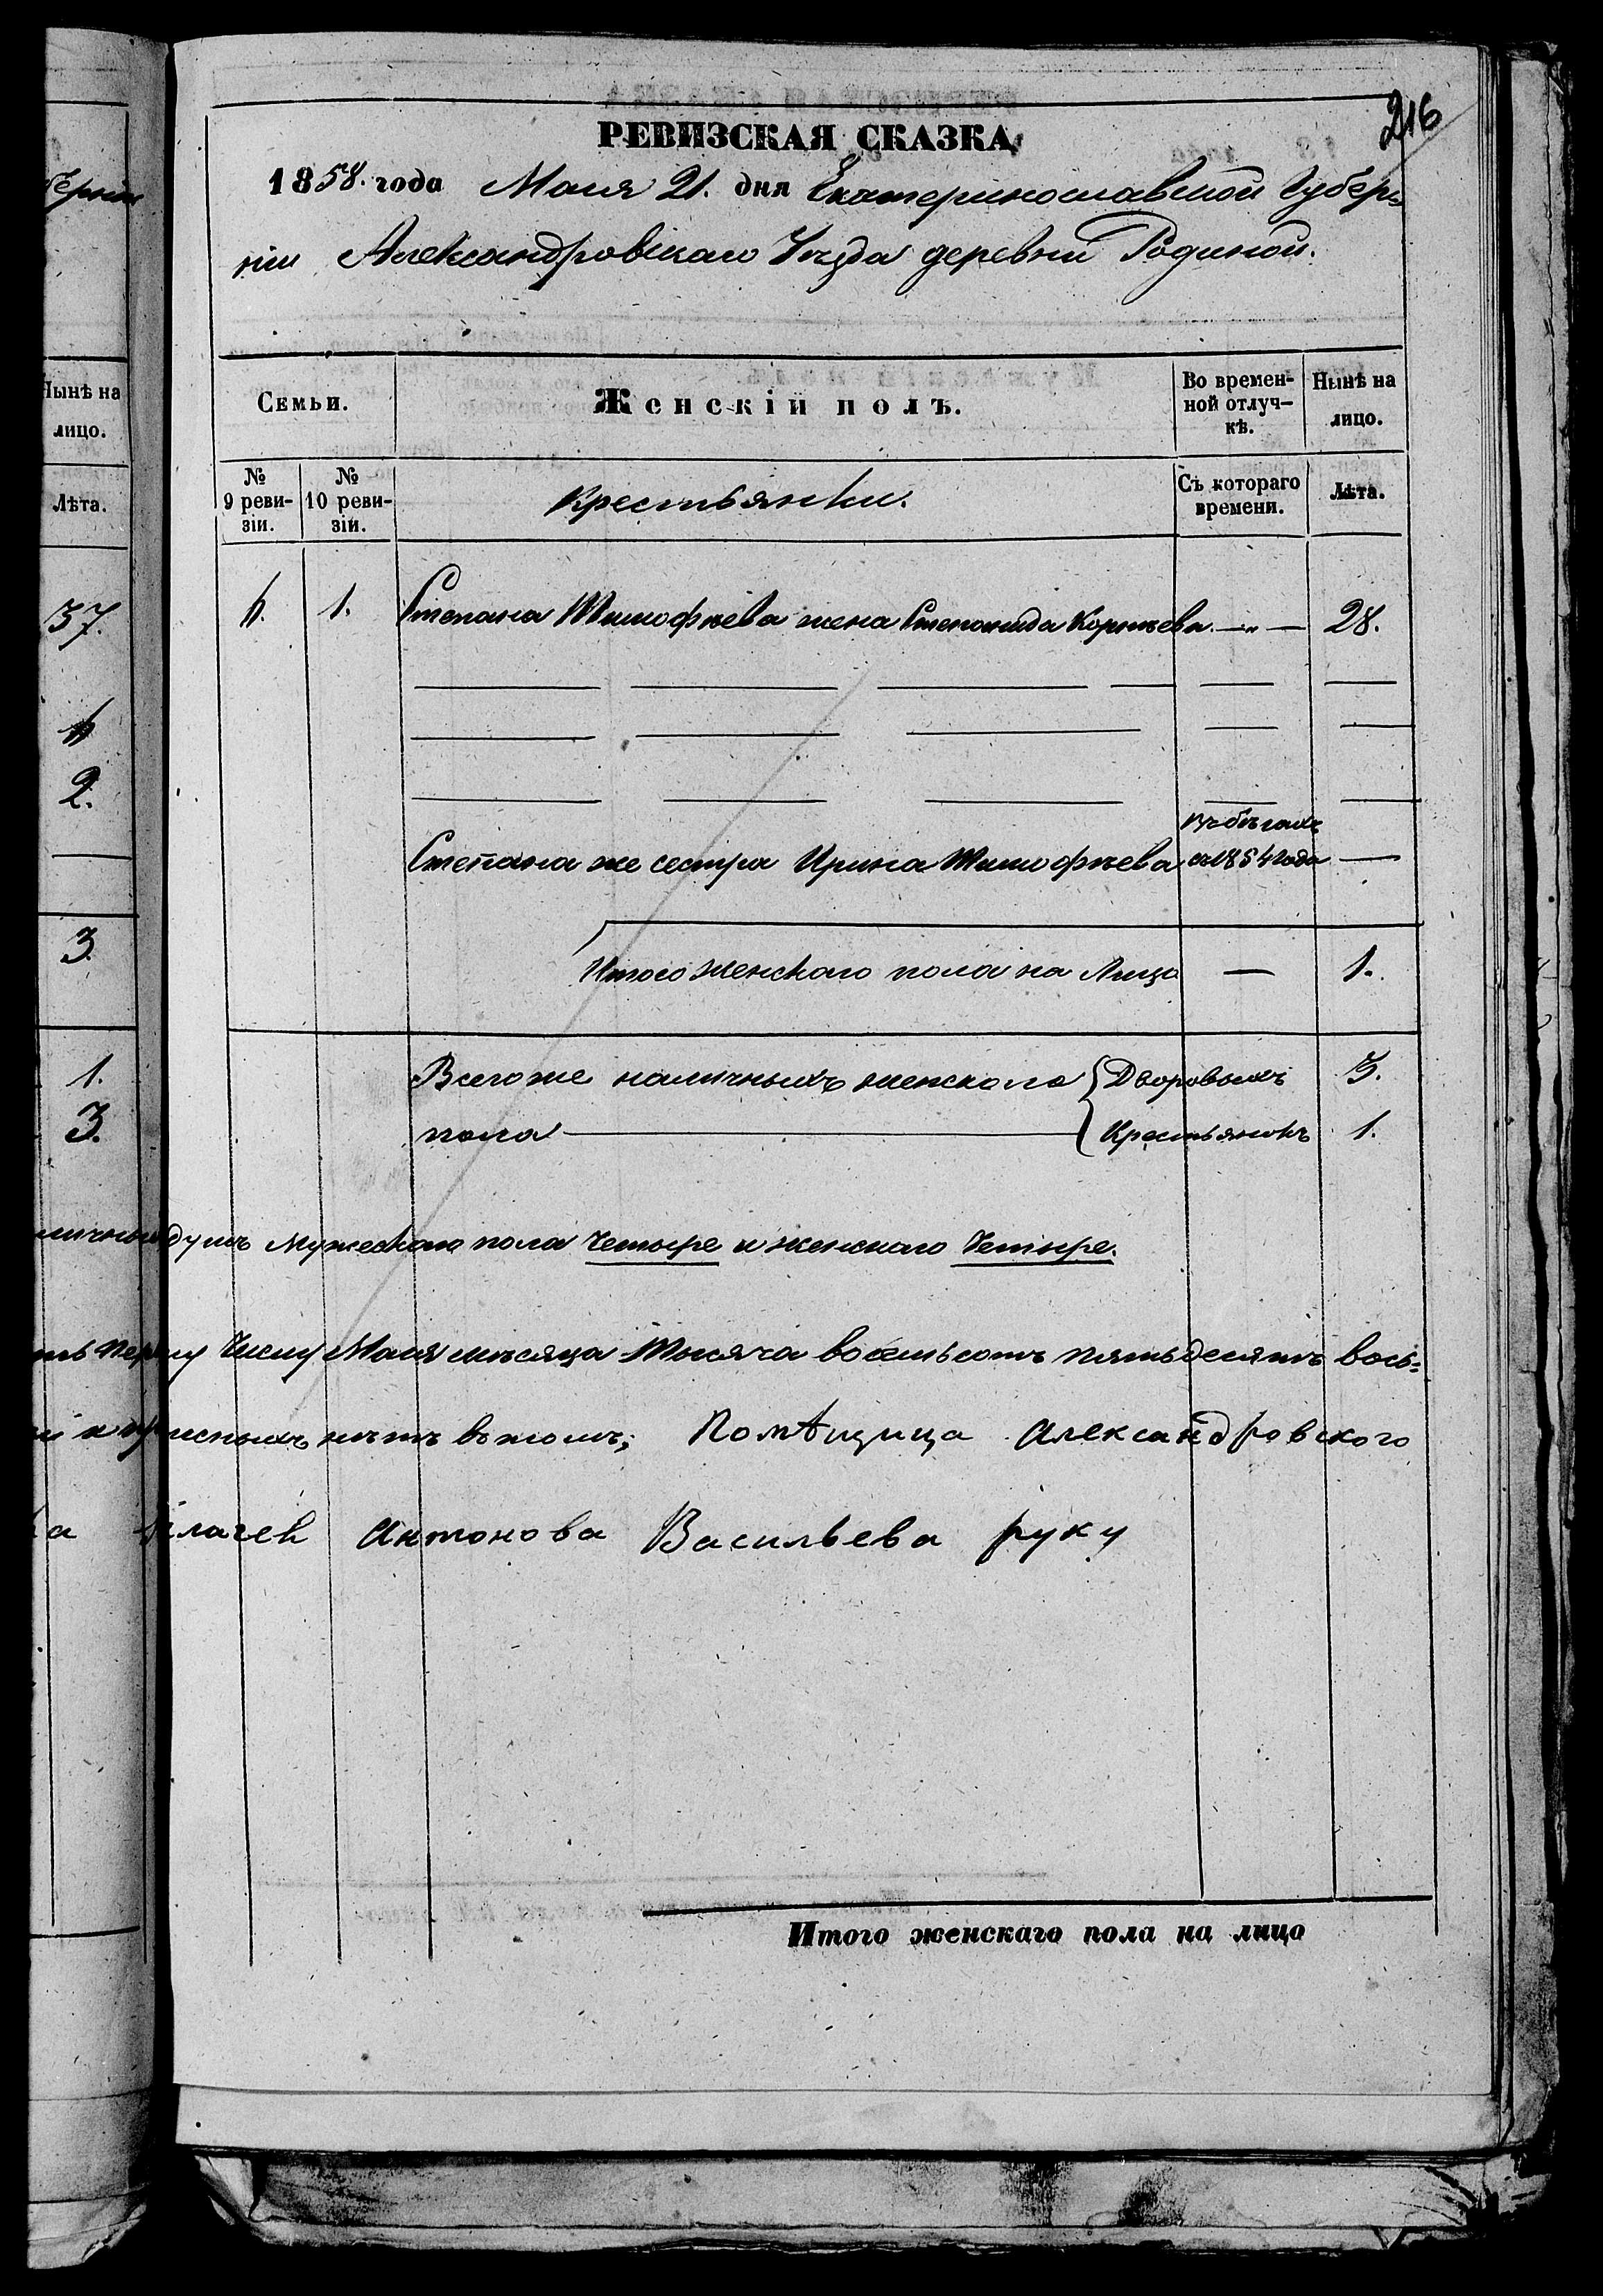 216
РЕВИЗСКАЯ СКАЗКА
1858. года Маія 21. дня Екатеринославской Губер=
ніи Александровскаго Уѣзда деревни Родиной.
Нынѣ на лицо.
Лѣта.
37.
2.
3.
1.
3.
Семьи.
Женскій полъ.
Во времен-
ной отлуч-
кѣ.
Нынѣ на
лицо.
№
9 реви-
зіи.
№
10 реви-
зіи.
Крестьянки.
Съ котораго
времени.
Лѣта.
1. Степана Тимофѣева жена Степанида Корнѣева — „ — 28.
въ бѣгахъ
Степана же сестра Ирина Тимофѣева съ 1854 года —
Итого женскаго пола на Лицо — 1.
Всего же наличныхъ женскаго { Дворовыхъ 3.
пола { Крестьянокъ 1.
душъ Мужескаго пола Четыре и женскаго Четыре.
Числу Маія мѣсяца Тысяча восемьсотъ пятьдесятъ вось=
нѣтъ въ томъ; Помѣщица Александровского
Антонова Васильева руку
Итого женскаго пола на лицо